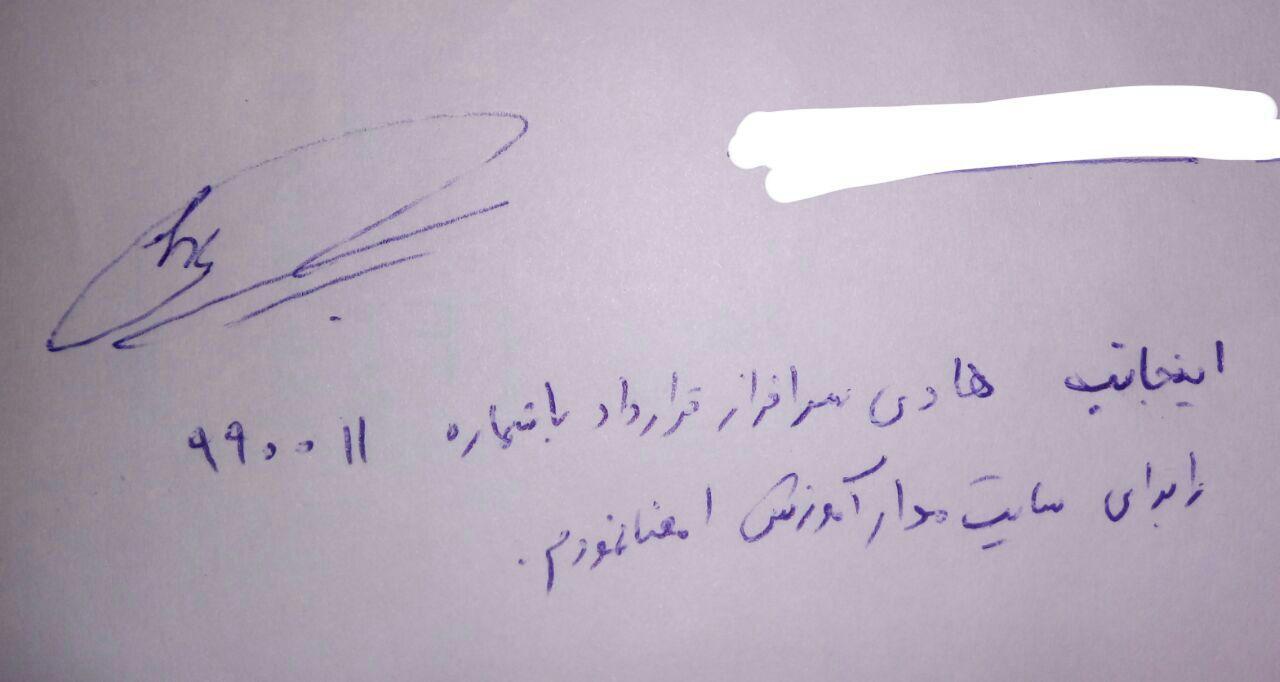 اینجانب هادی سرافراز قرارداد با شماره ۹۹۰۰۱۱
را برای سایت مدار آموزش امضا نمودم.